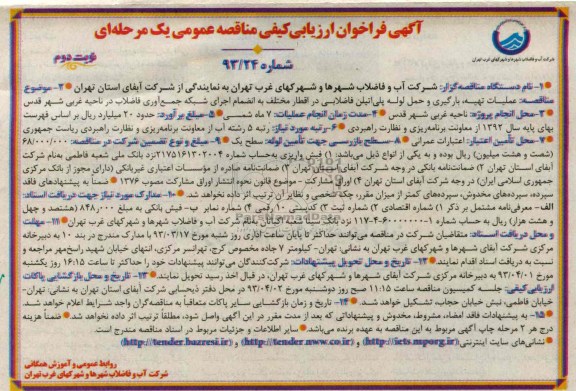 آگهی فراخوان ارزیابی کیفی مناقصه عمومی یک مرحله‌ای
شرکت آب و فاضلاب شهرها و شهرکهای غرب تهران
نوبت دوم
شماره ۹۳/۲۴
۱- نام دستگاه مناقصه‌گزار: شرکت آب و فاضلاب شهرها و شهرکهای غرب تهران به نمایندگی از شرکت آبفای استان تهران ۲- موضوع
مناقصه: عملیات تهیه، بارگیری و حمل لوله پلی‌اتیلن فاضلابی در اقطار مختلف به انضمام اجرای شبکه جمع‌آوری فاضلاب در ناحیه غربی شهر قدس
۳- محل انجام پروژه: ناحیه غربی شهر قدس ۴- مدت زمان انجام عملیات: ۷ ماه شمسی ۵- مبلغ برآورد: حدود ۲۰ میلیارد ریال بر اساس فهرست
بهای پایه سال ۱۳۹۲ از معاونت برنامه‌ریزی و نظارت راهبردی ۶- رتبه مورد نیاز: رتبه ۵ رشته آب از معاونت برنامه‌ریزی و نظارت راهبردی ریاست جمهوری
۷- محل تأمین اعتبار: اعتبارات عمرانی ۸- سطح بازرسی جهت تأمین لوله: سطح یک ۹- مبلغ و نوع تضمین شرکت در مناقصه: ۶۸/۰۰۰/۰۰۰
(شصت و هشت میلیون) ریال بوده و به یکی از انواع ذیل می‌باشد: ۱) فیش واریزی به‌حساب شماره ۲۱۷۵۱۶۱۳۰۲۰۰۴ نزد بانک ملی شعبه فاطمی به‌نام شرکت
آبفای استان تهران ۲) ضمانت‌نامه بانکی در وجه شرکت آبفای استان تهران ۳) ضمانت‌نامه صادره از مؤسسات اعتباری غیربانکی (دارای مجوز از بانک مرکزی
جمهوری اسلامی ایران) در وجه شرکت آبفای استان تهران ۴) اوراق مشارکت - موضوع قانون نحوه انتشار اوراق مشارکت مصوب ۱۳۷۶ ضمناً به پیشنهادهای فاقد
سپرده، سپرده‌های مخدوش، سپرده‌های کمتر از میزان مقرر، چک شخصی و نظایر آن ترتیب اثر داده نخواهد شد. ۱۰- مدارک مورد نیاز جهت دریافت اسناد:
الف- معرفی‌نامه مشتمل بر ذکر ۱) شماره اقتصادی ۲) شماره ثبت ۳) کدپستی ۱۰ رقمی ۴) شماره نمابر ب- فیش بانکی به مبلغ ۸۴۸/۰۰۰ (هشتصد و چهل
و هشت هزار) ریال به حساب شماره نزد بانک شرکت آب و فاضلاب شهرها و شهرکهای غرب تهران ۱۱- مهلت
و محل دریافت اسناد: متقاضیان شرکت در مناقصه می‌توانند حداکثر تا پایان ساعت اداری روز شنبه مورخ ۹۳/۰۳/۱۷ با مدارک مندرج در بند ۱۰ به دبیرخانه
مرکزی شرکت آبفای شهرها و شهرکهای غرب تهران به نشانی: تهران- کیلومتر ۷ جاده مخصوص کرج، تهرانسر مرکزی، انتهای خیابان شهید راسخ‌مهر مراجعه و
نسبت به دریافت اسناد اقدام نمایند ۱۲- تاریخ و محل تحویل پیشنهادات: شرکت‌کنندگان می‌توانند پیشنهادات خود را حداکثر تا ساعت ۱۶:۱۵ روز یکشنبه
مورخ ۹۳/۰۴/۰۱ به دبیرخانه مرکزی شرکت آبفای شهرها و شهرکهای غرب تهران، در قبال اخذ رسید تحویل نمایند ۱۳- تاریخ و محل بازگشایی پاکات
ارزیابی کیفی: جلسه کمیسیون مناقصه ساعت ۱۱:۱۵ صبح روز دوشنبه مورخ ۹۳/۰۴/۰۲ در محل دفتر ذیحسابی شرکت آبفای استان تهران به نشانی: تهران-
خیابان فاطمی، نبش خیابان حجاب، تشکیل خواهد شد. ۱۴- تاریخ و زمان بازگشایی سایر پاکات متعاقباً به مناقصه‌گران واجد شرایط اعلام خواهد شد.
۱۵- به پیشنهادات فاقد امضاء، مشروط، مخدوش و پیشنهاداتی که بعد از مدت مقرر در این آگهی واصل شود، مطلقاً ترتیب اثر داده نخواهد شد ضمناً هزینه
درج هر ۲ مرحله چاپ آگهی مربوط به این مناقصه به عهده برنده می‌باشد سایر اطلاعات و جزئیات مربوط در اسناد مناقصه مندرج است
نشانی‌های سایت اینترنتی: (http://iets.mporg.ir) و (http://tender.nww.co.ir) و (http://tender.bazresi.ir)
روابط عمومی و آموزش همگانی
شرکت آب و فاضلاب شهرها و شهرکهای غرب تهران